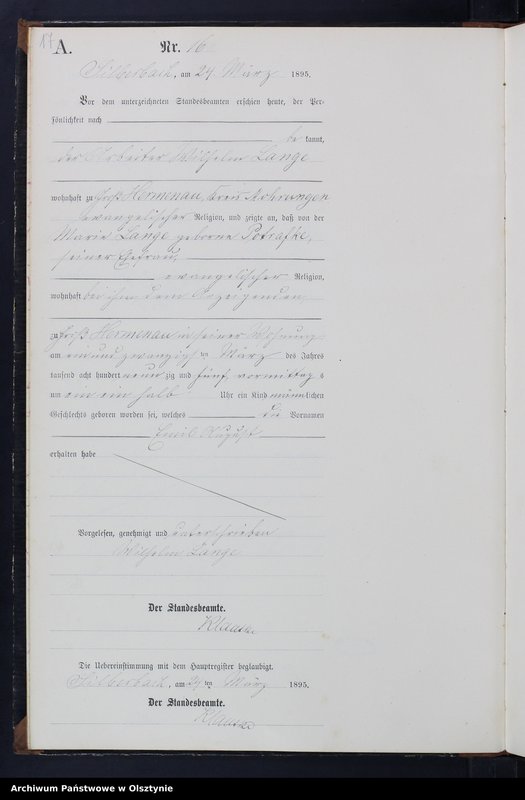 17
A.
Nr. 16
Silberbach, am 24 März 1895.
Vor dem unterzeichneten Standesbeamten erschien heute, der Per-
sönlichkeit nach
be kannt,
der Arbeiter Wilhelm Lange
wohnhaft zu Groß Hermenau, Kreis Mohrungen
evangelischer Religion, und zeigte an, daß von der
Marie Lange geborne Potrafke,
seiner Ehefrau,
evangelischer Religion,
wohnhaft bei ihm dem Anzeigenden
zu Groß Hermenau in seiner Wohnung
am ein und zwanzigsten März des Jahres
tausend acht hundert neun zig und fünf, vormittags
um ein ein halb Uhr ein Kind männlichen
Geschlechts geboren worden sei, welches die Vornamen
Emil August
erhalten habe
Vorgelesen, genehmigt und unterschrieben
Wilhelm Lange
Der Standesbeamte.
Die Uebereinstimmung mit dem Hauptregister beglaubigt.
Silberbach, am 24 ten März 1895.
Der Standesbeamte.
Archiwum Państwowe w Olsztynie